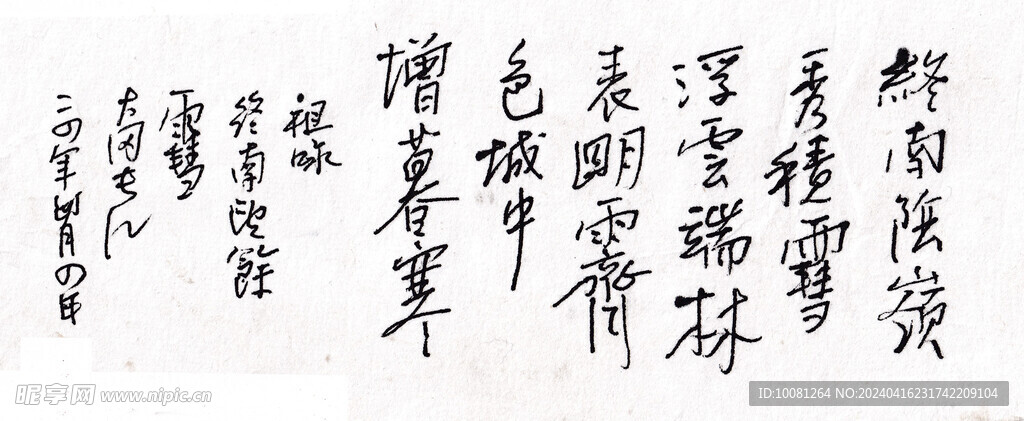 終南陰嶺
秀積雪
浮雲端林
表明霽
色城中
增暮寒
祖咏
終南望餘
雪
二四年四月四日
昵享网 www.nipic.cn
ID:10081264 NO:20240416231742209104